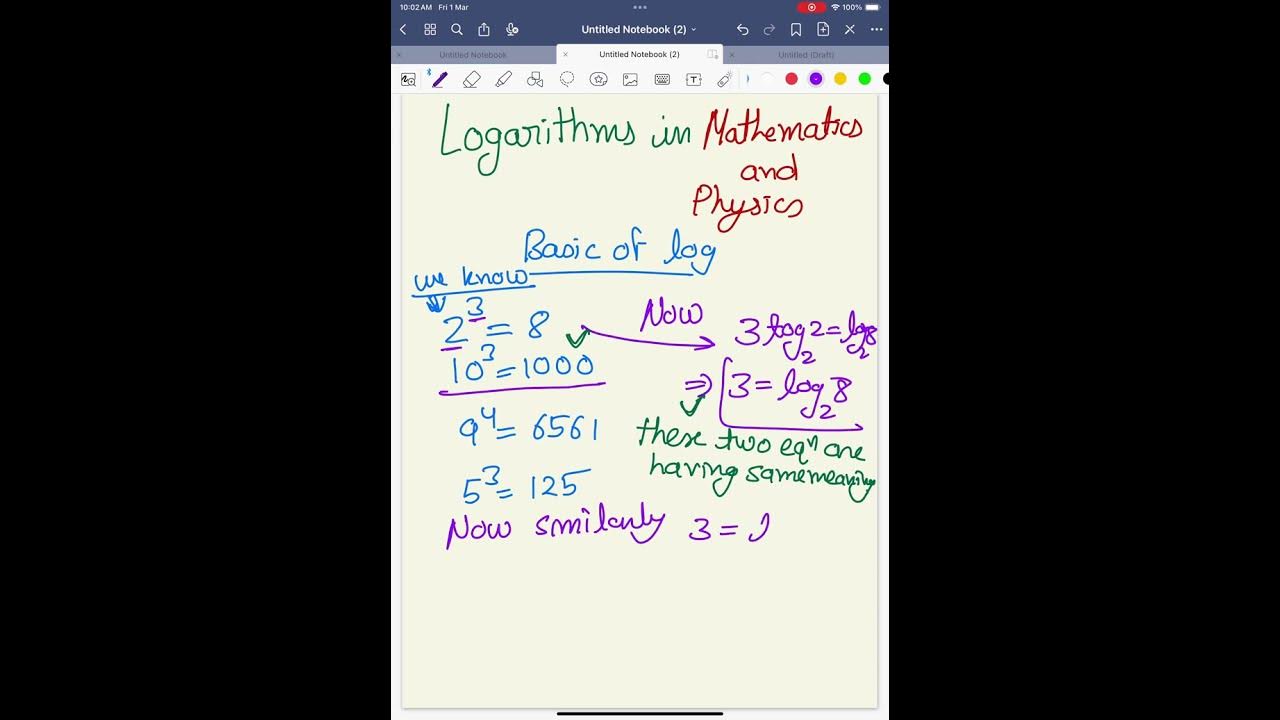 10:02 AM Fri 1 Mar
100%
Untitled Notebook (2)
Untitled Notebook
Untitled Notebook (2)
Untitled (Draft)
Logarithms in Mathematics
and
Physics
Basic of log
we know
2³ = 8
Now
3 log₂2 = log₂8
10³ = 1000
⇒ 3 = log₂8
9⁴ = 6561
these two eqⁿ are
having same meaning
5³ = 125
Now similarly 3 =